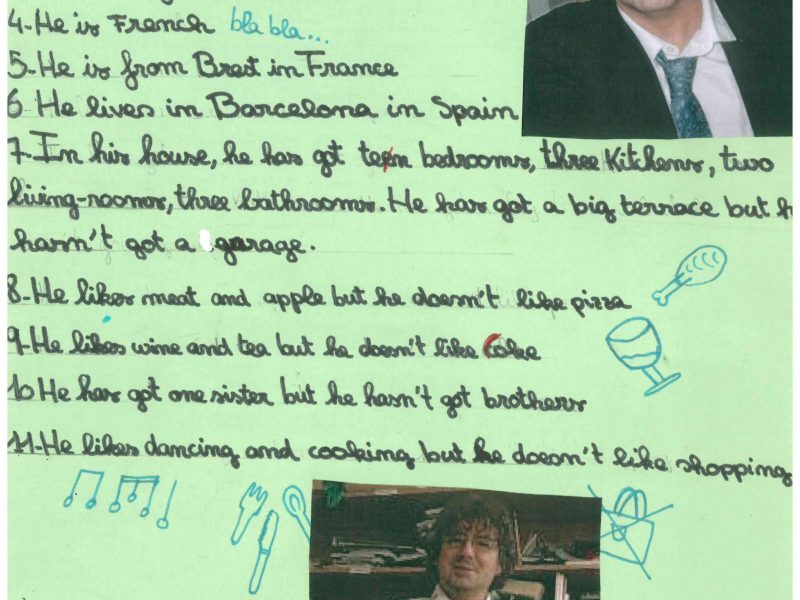 4-He is French bla bla...
5-He is from Brest in France
6 He lives in Barcelona in Spain
7-In his house, he has got ten bedrooms, three Kitchens, two
living-rooms, three bathrooms. He has got a big terrace but h
hasn't got a garage.
8-He likes meat and apple but he doesn't like pizza
9-He likes wine and tea but he doesn't like Coke
10 He has got one sister but he hasn't got brothers
11-He likes dancing and cooking but he doesn't like shopping